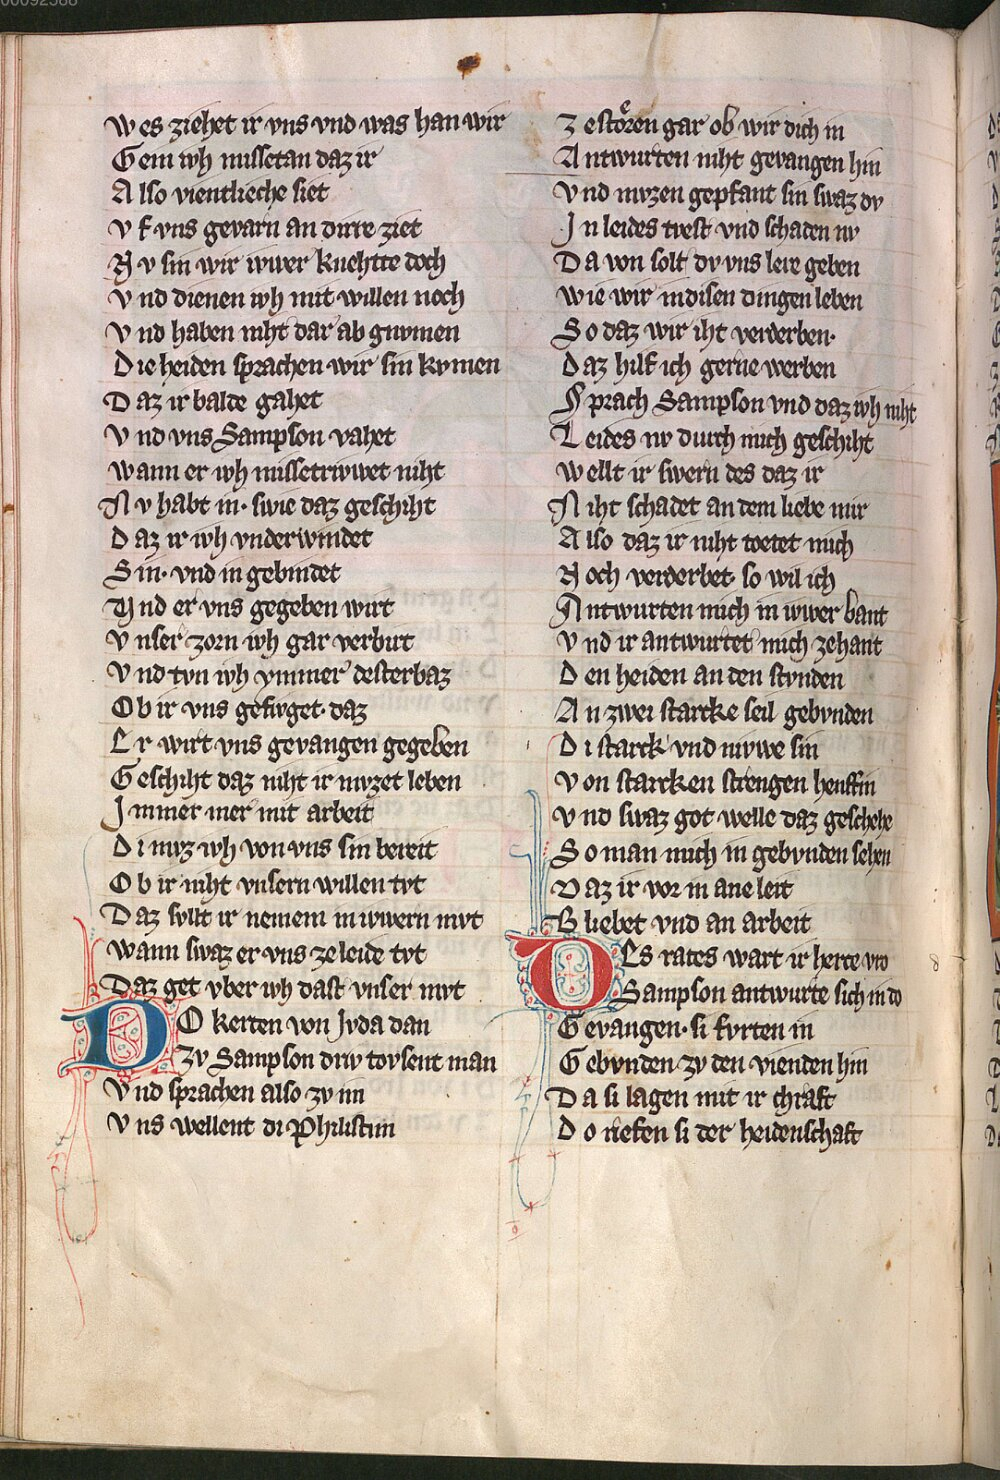 00092588
Wes ziehet ir vns vnd was han wir
Gein iwh missetan daz ir
Also vientlieche siet
Vf vns gevarn an dirre ziet
Nv sin wir iwer knehtte doch
Vnd dienen iwh mit willen noch
Vnd haben niht dar ab gnvmen
Die heiden sprachen wir sin kvmen
Daz ir balde gahet
Vnd vns Sampson vahet
Wann er iwh missetriwet niht
Nv habt in· swie daz geschiht
Daz ir iwh vnderwindet
Sin· vnd in gebindet
Vnd er vns gegeben wirt
Vnser zorn iwh gar verbirt
Vnd tvn iwh ymmer desterbaz
Ob ir vns gefvget daz
Er wirt vns gevangen gegeben
Geschiht daz niht ir mvzet leben
Immer mer mit arbeit
Di mvz iwh von vns sin bereit
Ob ir niht vnsern willen tvt
Daz svllt ir nemem in iwern mvt
Wann swaz er vns ze leide tvt
Daz get vber iwh dast vnser mvt
DO kerten von Jvda dan
Zv Sampson driv tovsent man
Vnd sprachen also zv im
Vns wellent di Philistim
Zestoͤren gar ob wir dich in
Antwurten niht gevangen hin
Vnd mvzen gepfant sin swaz dv
In leides tvest vnd schaden nv
Da von solt dv vns lere geben
Wie wir in disen dingen leben
So daz wir iht verderben·
Daz hilf ich gerne werben
Sprach Sampson vnd daz iwh niht
Leides nv durch mich geschiht
Wellt ir swern des daz ir
Niht schadet an dem liebe mir
Also daz ir niht toetet mich
Noch verderbet· so wil ich
Antwurten mich in iwer bant
Vnd ir antwurtet mich zehant
Den heiden an den stvnden
An zwei starcke seil gebvnden
Di starck vnd nivwe sin
Von starcken strengen henffin
Vnd swaz got welle daz geschehe
So man mich in gebvnden sehen
Daz ir vor in ane leit
Bliebet vnd an arbeit
DEs rates wart ir herte vro
Sampson antwurte sich in do
Gevangen· si fvrten in
Gebvnden zv den vienden hin
Da si lagen mit ir chraft
Do riefen si der heidenschaft